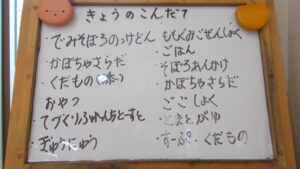 きょうのこんだて
・でみそぼろのっけどん
・かぼちゃさらだ
・くだもの
おやつ
・てづくりふれんちとーすと
・ぎゅうにゅう
ももぐみごぜんしょく
・ごはん
・そぼろあんかけ
・かぼちゃさらだ
ごごしょく
・とまとがゆ
・すーぷ・くだもの